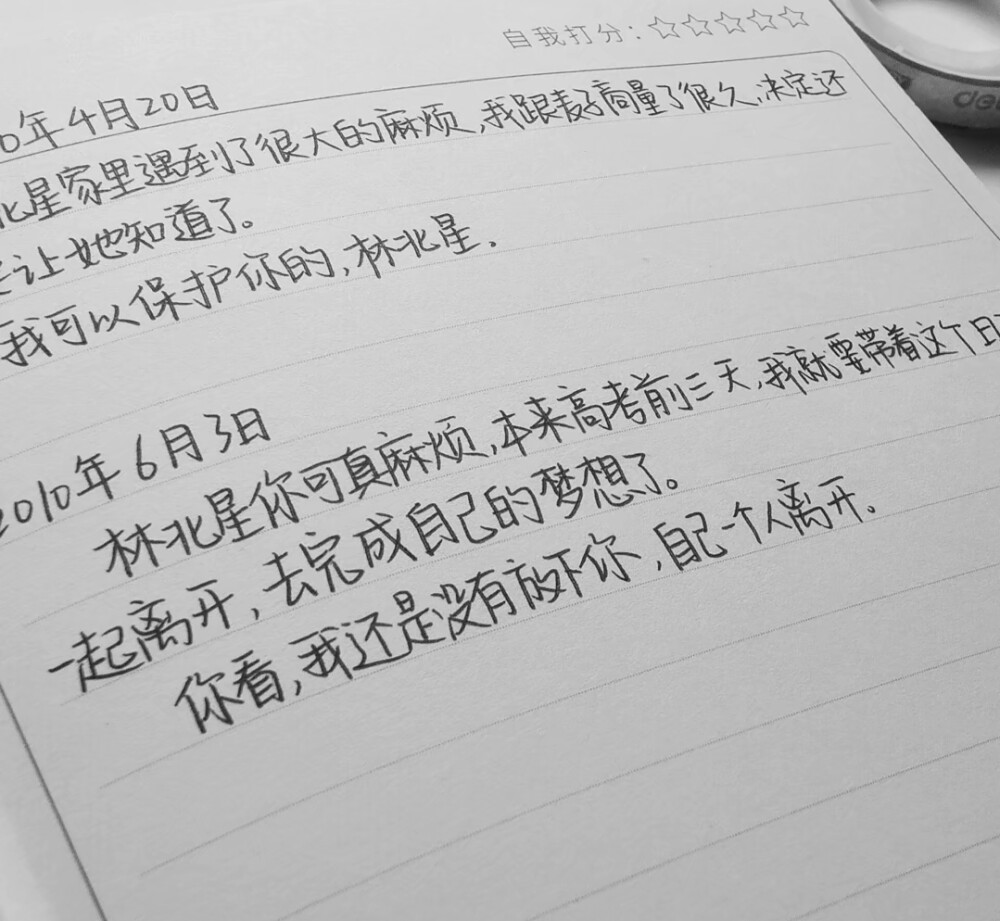 自我打分：☆☆☆☆☆
0年4月20日
北星家里遇到了很大的麻烦，我跟麦子商量了很久，决定还
是让她知道了。
我可以保护你的，林北星．
2010年6月3日
林北星你可真麻烦，本来高考前三天，我就要带着这个日
一起离开，去完成自己的梦想了。
你看，我还是没有放下你，自己一个人离开。